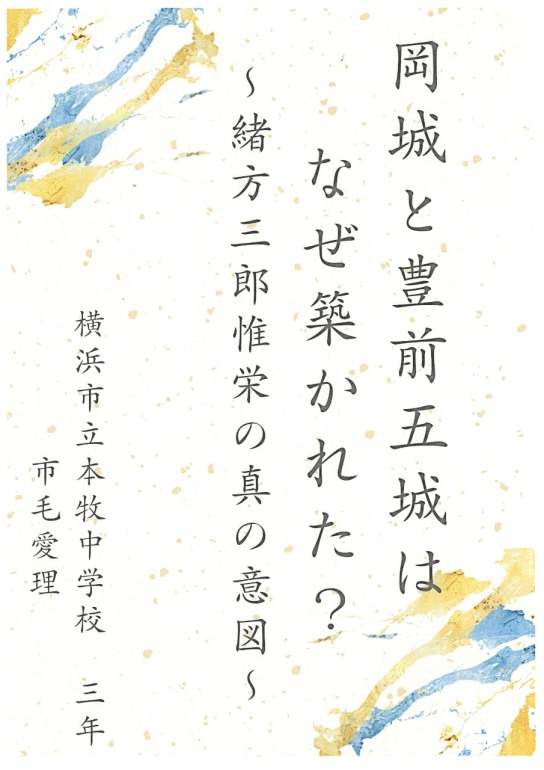 岡城と豊前五城は
なぜ築かれた?
~緒方三郎惟栄の真の意図~
横浜市立本牧中学校 三年
市毛愛理